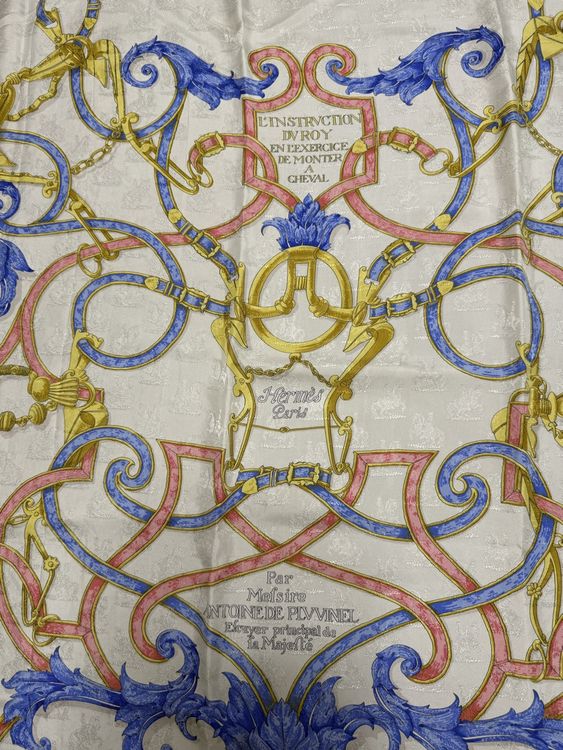 L'INSTRVCTION
DV ROY
EN L'EXERCICE
DE MONTER
A
CHEVAL
Hermès
Paris
Par
Messire
ANTOINE DE PLVVINEL
Escuyer principal de
sa Majesté